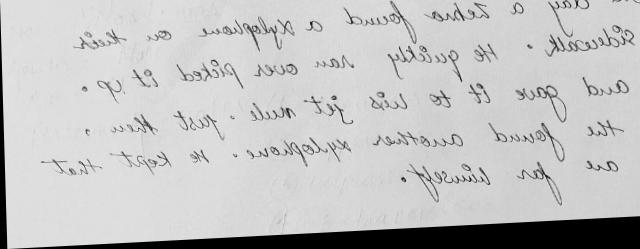 day a Zebra found a xylophone on their
sidewalk. He quickly ran over picked it up.
and gave it to his jet mule. just then,
the found another xylophone. He kept that
one for himself.